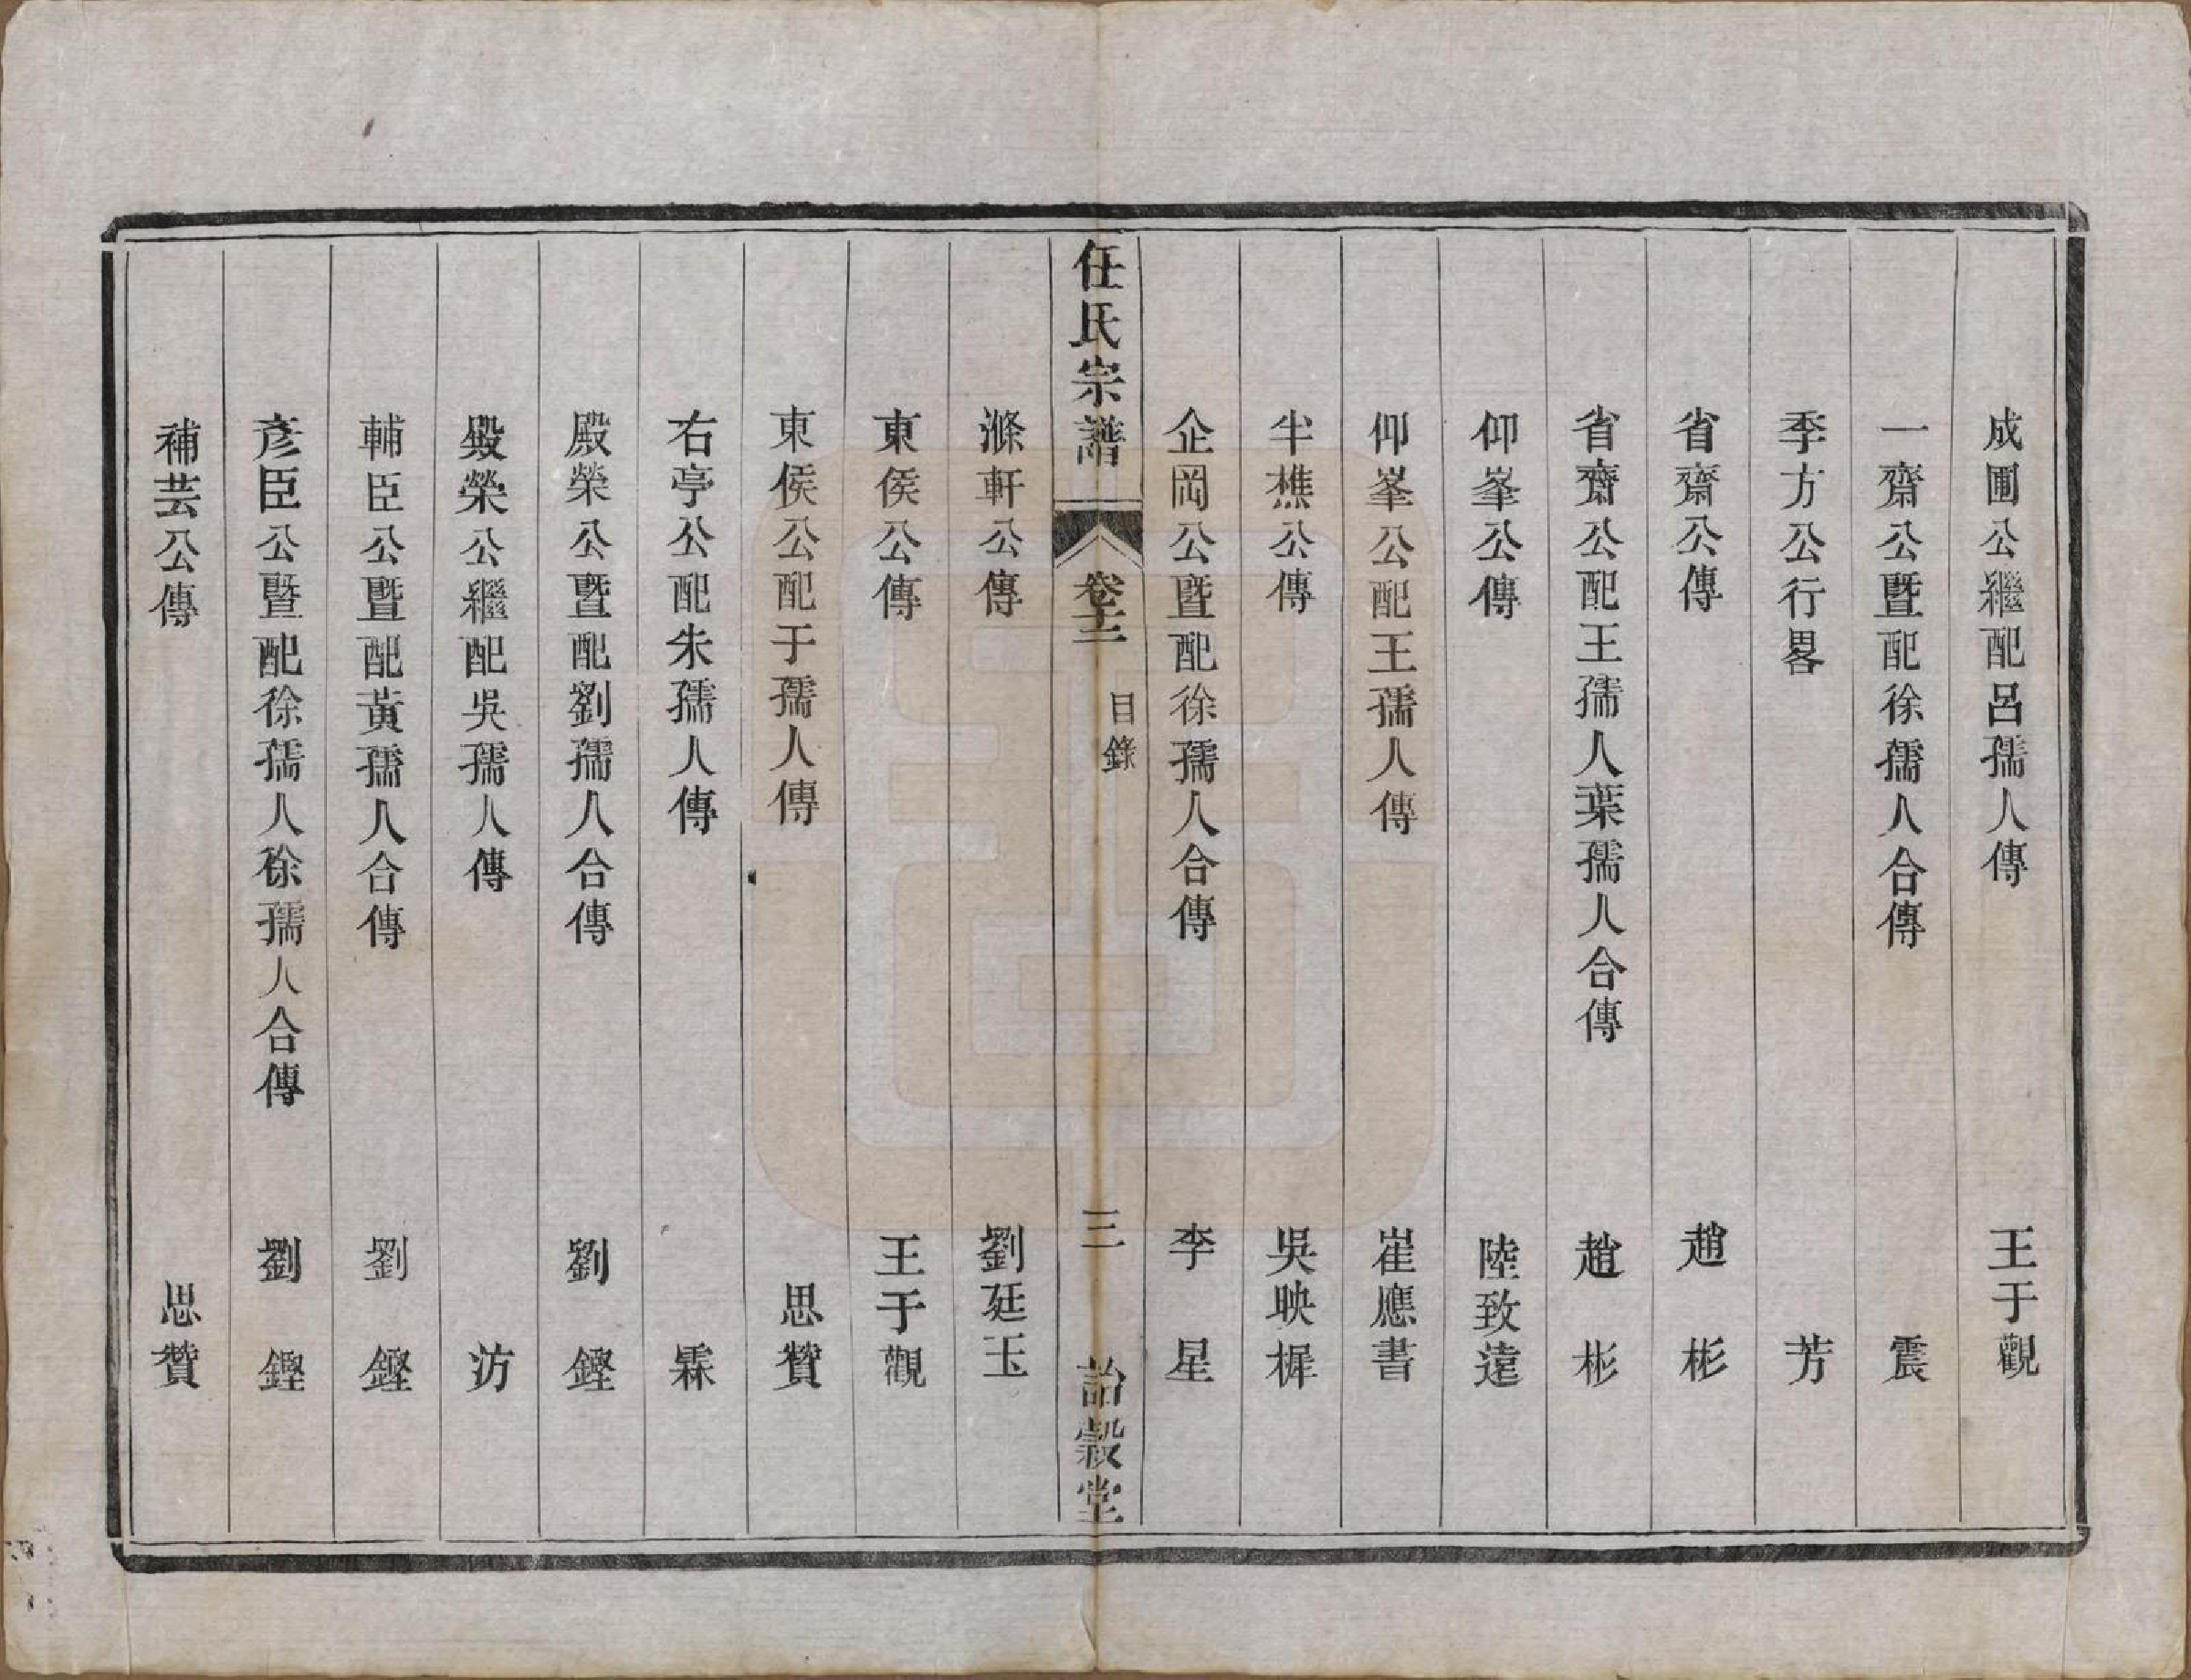 成圃公繼配呂孺人傳　王于觀
一齋公暨配徐孺人合傳　震
季方公行畧　芳
省齋公傳　趙彬
省齋公配王孺人葉孺人合傳　趙彬
仰峯公傳　陸致遠
仰峯公配王孺人傳　崔應書
半樵公傳　吳映樨
企岡公暨配徐孺人合傳　李星
任氏宗譜　卷十二　目錄　三　詒穀堂
滌軒公傳　劉廷玉
東侯公傳　王于觀
東侯公配于孺人傳　思贊
右亭公配朱孺人傳　霖
殿榮公暨配劉孺人合傳　劉鏗
殿榮公繼配吳孺人傳　汸
輔臣公暨配黃孺人合傳　劉鏗
彥臣公暨配徐孺人徐孺人合傳　劉鏗
補芸公傳　思贊